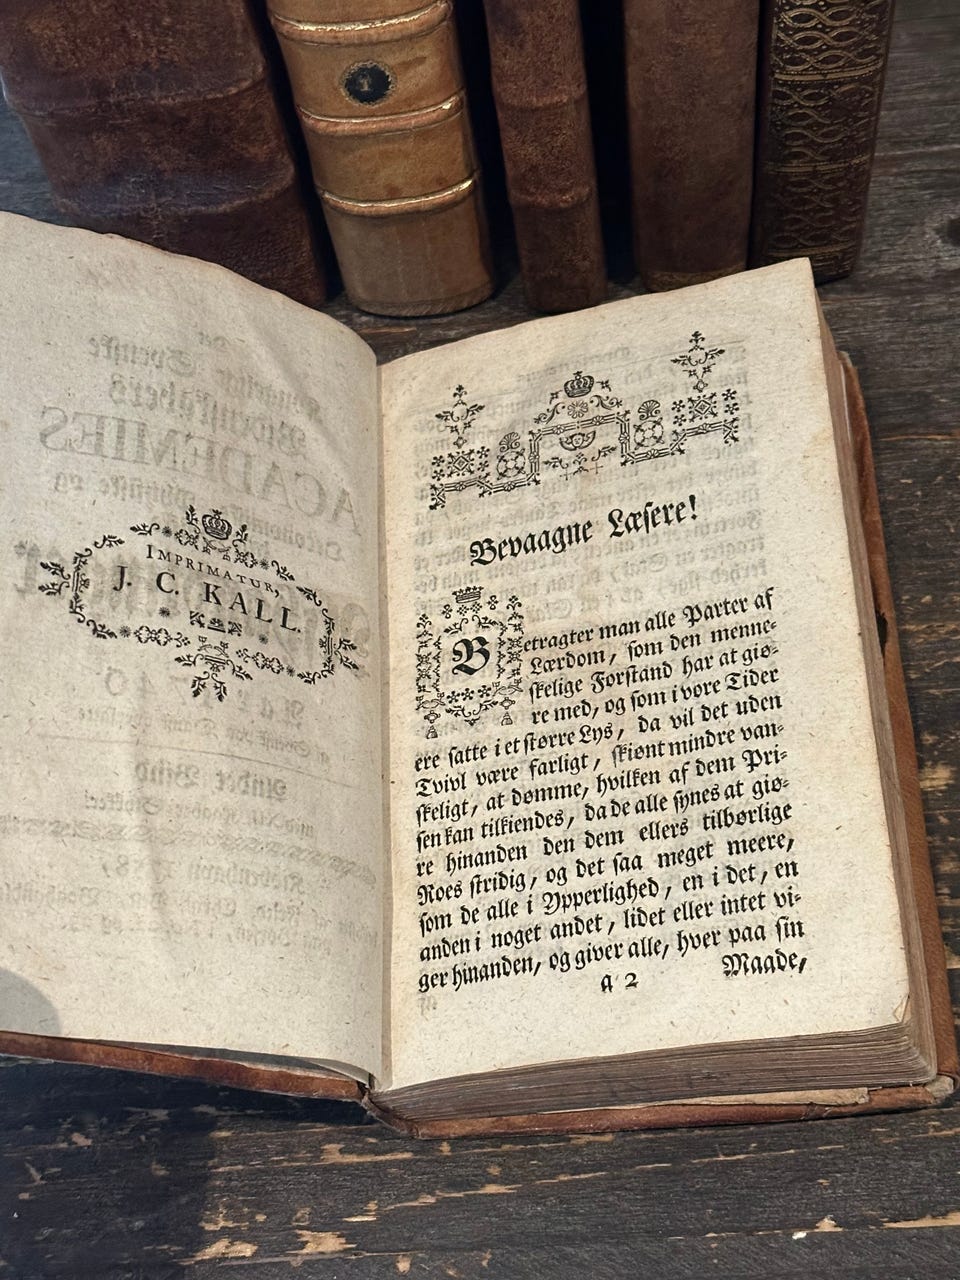 IMPRIMATUR,
J. C. KALL.
Bevaagne Læsere!
Betragter man alle Parter af
Lærdom, som den menne-
skelige Forstand har at giø-
re med, og som i vore Tider
ere satte i et større Lys, da vil det uden
Tvivl være farligt, skiønt mindre van-
skeligt, at dømme, hvilken af dem Pri-
sen kan tilkiendes, da de alle synes at giø-
re hinanden den dem ellers tilbørlige
Roes stridig, og det saa meget meere,
som de alle i Ypperlighed, en i det, en
anden i noget andet, lidet eller intet vi-
ger hinanden, og giver alle, hver paa sin
a 2 Maade,